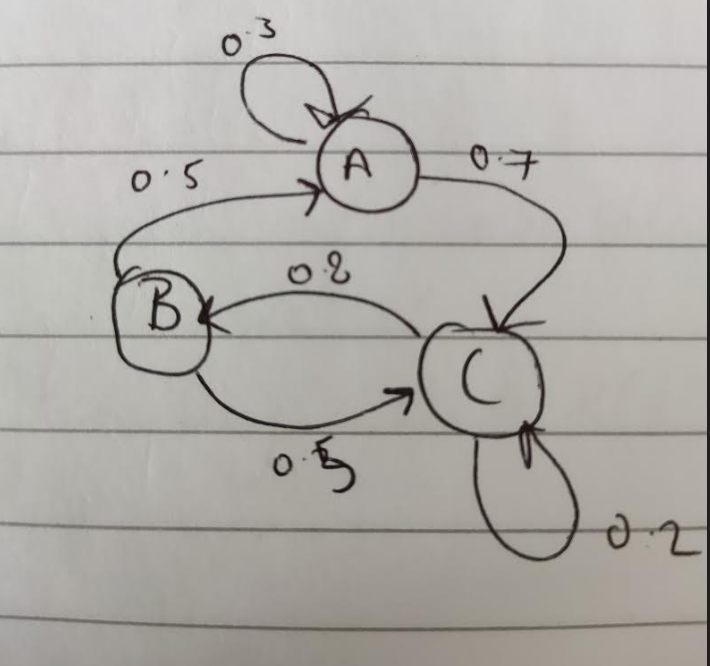 0.3
A
0.7
0.5
0.8
B
C
0.5
0.2